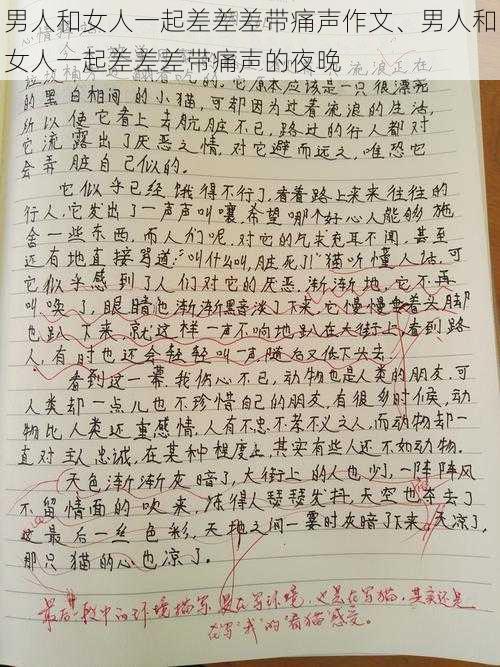 男人和女人一起差差差带痛声作文、男人和
女人一起差差差带痛声的夜晚
流浪正在
垃圾桶
它原本应该是一只很漂亮
的黑白相间的小猫,可却因为过着流浪的生活,
所以使它看上去肮脏不已,路过的行人都对
它流露出了厌恶之情,对它避而远之,唯恐它
会弄脏自己似的。
它似乎已经饿得不行了,看着路上来来往往的
行人,它发出了一声声叫嚷,希望哪个好心人能够施
舍一些东西,而人们呢,对它的乞求充耳不闻,甚至
还有地直接骂道:“叫什么叫,脏死了!”猫听懂人话,可
它似乎感到了人们对它的厌恶,渐渐地,它不再
叫唤了,眼睛也渐渐黑音淡了下来,它慢慢垂着头,脚
也趴下来,就这样一声不响地趴在大街上,看到路
人,有时也还会轻轻叫一声,随后又低下头去。
看到这一幕,我伤心不已,动物也是人类的朋友,可
人类却一点儿也不珍惜自己的朋友,有很多时候,动
物比人类还重感情,人有不忠不孝不义之人,而动物却一
直对主人忠诚,在某种程度上,其实有些人还不如动物。
天色渐渐灰暗了,大街上的人也少了,一阵阵风
不留情面的吹来,冻得人瑟瑟发抖,天空也夺去了
这最后一丝色彩,天地之间一霎时灰暗了下来,天凉了,
那只猫的心也凉了。
最后一段中的环境描写,是在写环境,也是在写猫,其实还是
在写“我”的看猫感受。